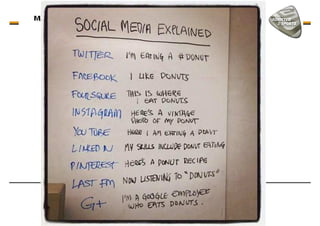 M
SOCIAL MEDIA EXPLAINED
TWITTER I'M EATING A #DONUT
FACEBOOK I LIKE DONUTS
FOURSQUARE THIS IS WHERE
I EAT DONUTS
INSTAGRAM HERE'S A VINTAGE
PHOTO OF MY DONUT
YOU TUBE HERE I AM EATING A DONUT
LINKED IN MY SKILLS INCLUDE DONUT EATING
PINTEREST HERE'S A DONUT RECIPE
LAST FM NOW LISTENING TO "DONUTS"
G+ I'M A GOOGLE EMPLOYEE
WHO EATS DONUTS.